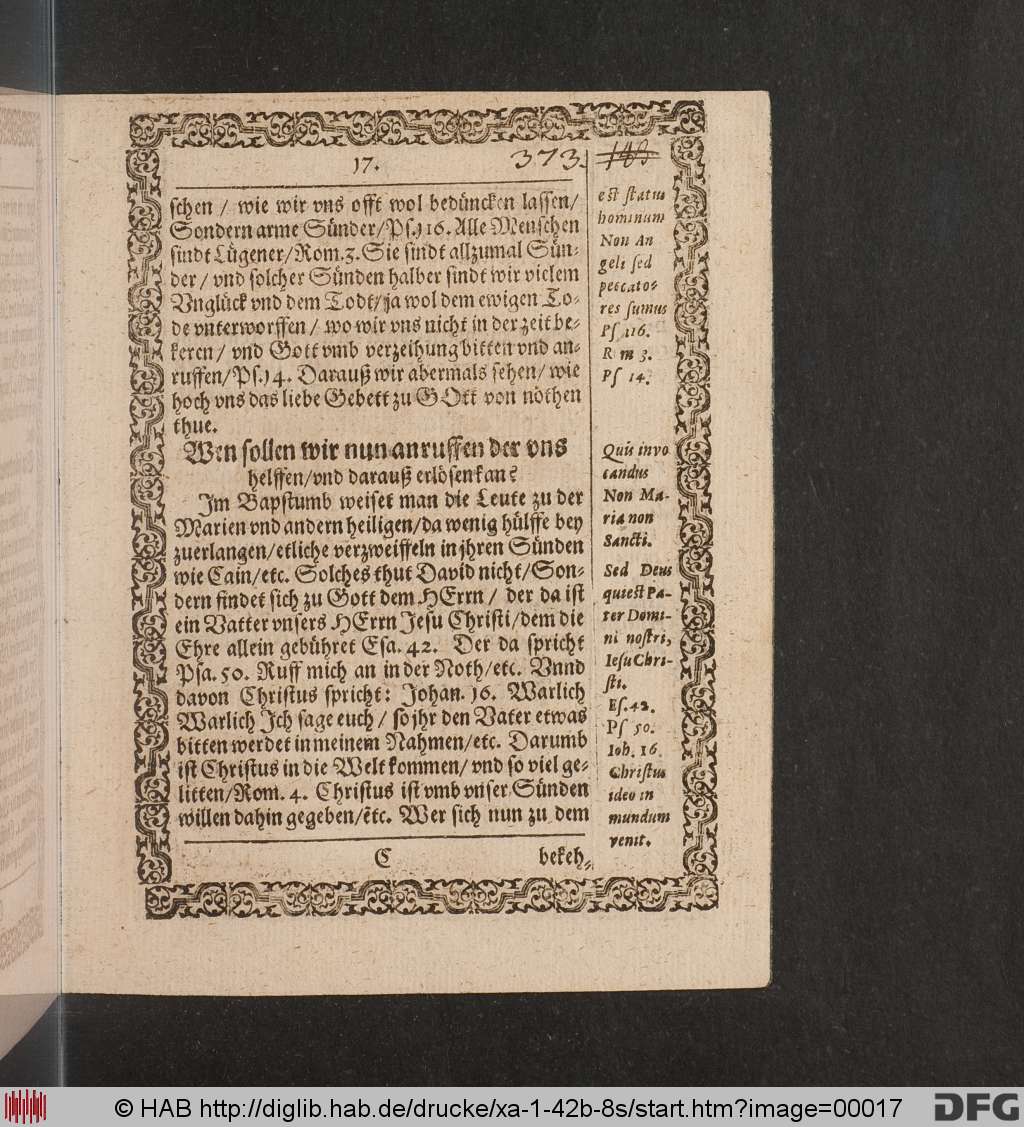 17.
373. 148
schen / wie wir vns offt wol bedüncken lassen/
Sondern arme Sünder/Ps.116. Alle Menschen
sindt Lügener/Rom.3. Sie sindt allzumal Sün-
der / vnd solcher Sünden halber sindt wir vielem
Vnglück vnd dem Todt/ja wol dem ewigen To-
de vnterworffen / wo wir vns nicht in der zeit be-
keren / vnd Gott vmb verzeihung bitten vnd an-
ruffen/Ps.14. Darauß wir abermals sehen/ wie
hoch vns das liebe Gebett zu GOtt von nöthen
thue.
Wen sollen wir nun anruffen der vns
helffen/vnd darauß erlösen kan?
Im Bapstumb weiset man die Leute zu der
Marien vnd andern heiligen/da wenig hülffe bey
zuerlangen/etliche verzweiffeln in jhren Sünden
wie Cain/etc. Solches thut David nicht/Son-
dern findet sich zu Gott dem HErrn / der da ist
ein Vatter vnsers HErrn Jesu Christi/dem die
Ehre allein gebühret Esa. 42. Der da spricht
Psa. 50. Ruff mich an in der Noth/etc. Vnnd
davon Christus spricht: Johan. 16. Warlich
Warlich Ich sage euch / so jhr den Vater etwas
bitten werdet in meinem Nahmen/etc. Darumb
ist Christus in die Welt kommen/ vnd so viel ge-
litten/Rom. 4. Christus ist vmb vnser Sünden
willen dahin gegeben/etc. Wer sich nun zu dem
C bekeh-
est statu
hominum
Non An
geli sed
peccato-
res sumus
Ps 116.
R m 3.
Ps 14.
Quis invo
candus
Non Ma-
ria non
Sancti.
Sed Deus
qui est Pa-
ter Domi-
ni nostri,
Iesu Chri-
sti.
Es. 42.
Ps 50.
Ioh. 16.
Christus
ideo in
mundum
venit.
© HAB http://diglib.hab.de/drucke/xa-1-42b-8s/start.htm?image=00017
DFG